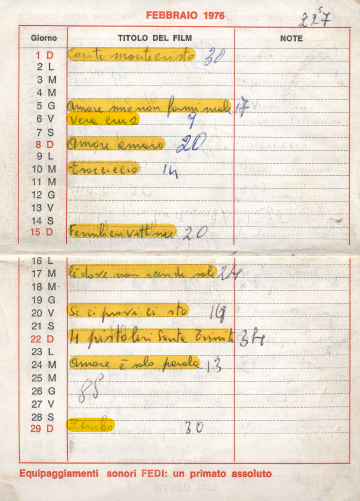 FEBBRAIO 1976
227
Giorno TITOLO DEL FILM NOTE
1 D Conte montecristo 38
2 L
3 M
4 M
5 G Amore mio non farmi male 17
6 V Vera cruz 7
7 S
8 D Amore amaro 20
9 L
10 M Esorciccio 14
11 M
12 G
13 V
14 S
15 D 20
16 L
17 M là dove non scende sole 24
18 M
19 G
20 V Se ci provi ci sto 19
21 S
22 D 4 pistoleri Santa Trinità 34
23 L
24 M Amore è solo parola 13
25 M
26 G 88
27 V
28 S
29 D Zembo 30
Equipaggiamenti sonori FEDI: un primato assoluto